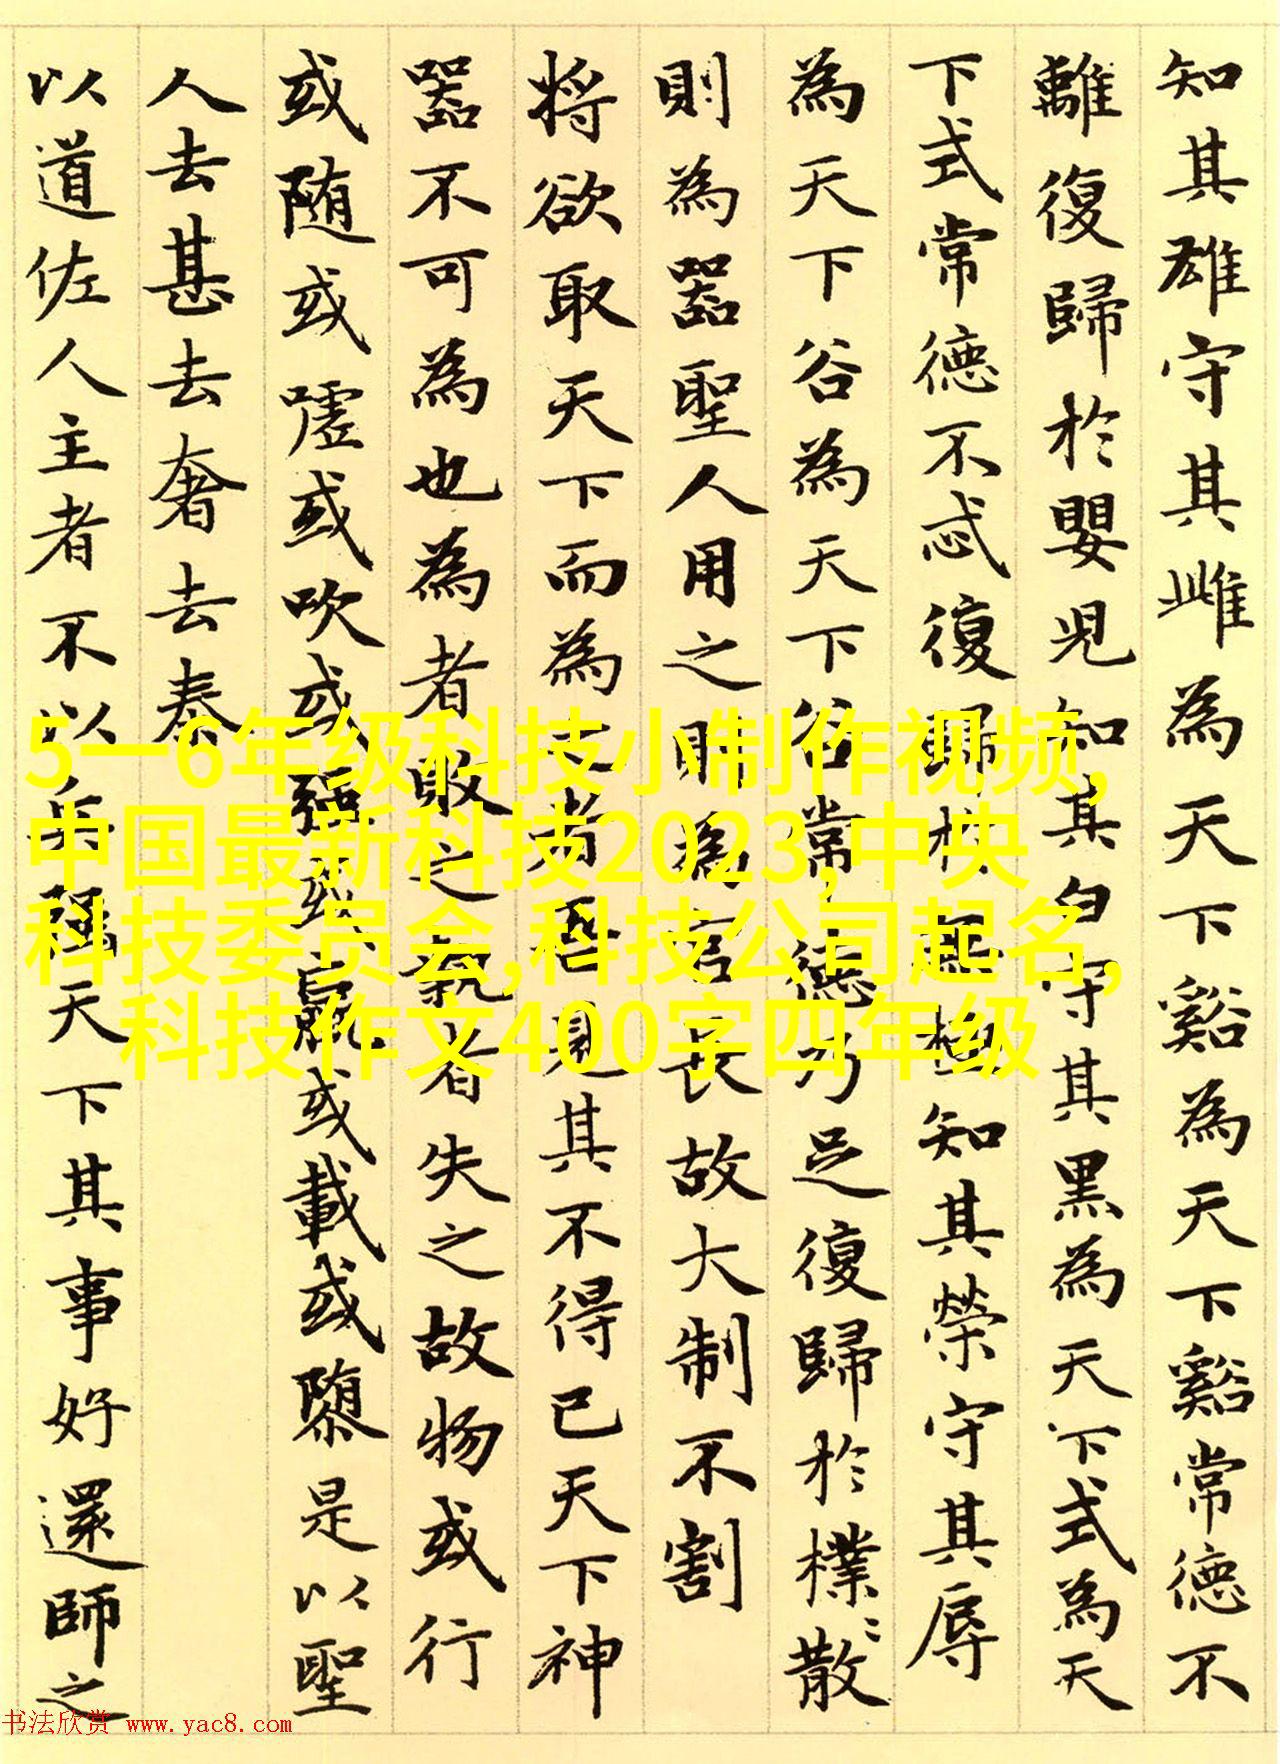 知其雄守其雌為天下谿為天下谿常德不
離復歸於嬰兒知其白守其黑為天下式為天
下式常德不忒復歸於無極知其榮守其辱
為天下谷為天下谷常德乃足復歸於樸〻散
則為器聖人用之則為官長故大制不割
將欲取天下而為之者吾見其不得已天下神
器不可為也為者敗之執者失之故物或行
或隨或噓或吹或強或羸或載或隳是以聖
人去甚去奢去泰
以道佐人主者不以兵強天下其事好還師之
5一6年级科技小制作视频,
中国最新科技2023,中央
科技委员会,科技公司起名,
科技作文400字四年级
书法欣赏 www.yac8.com